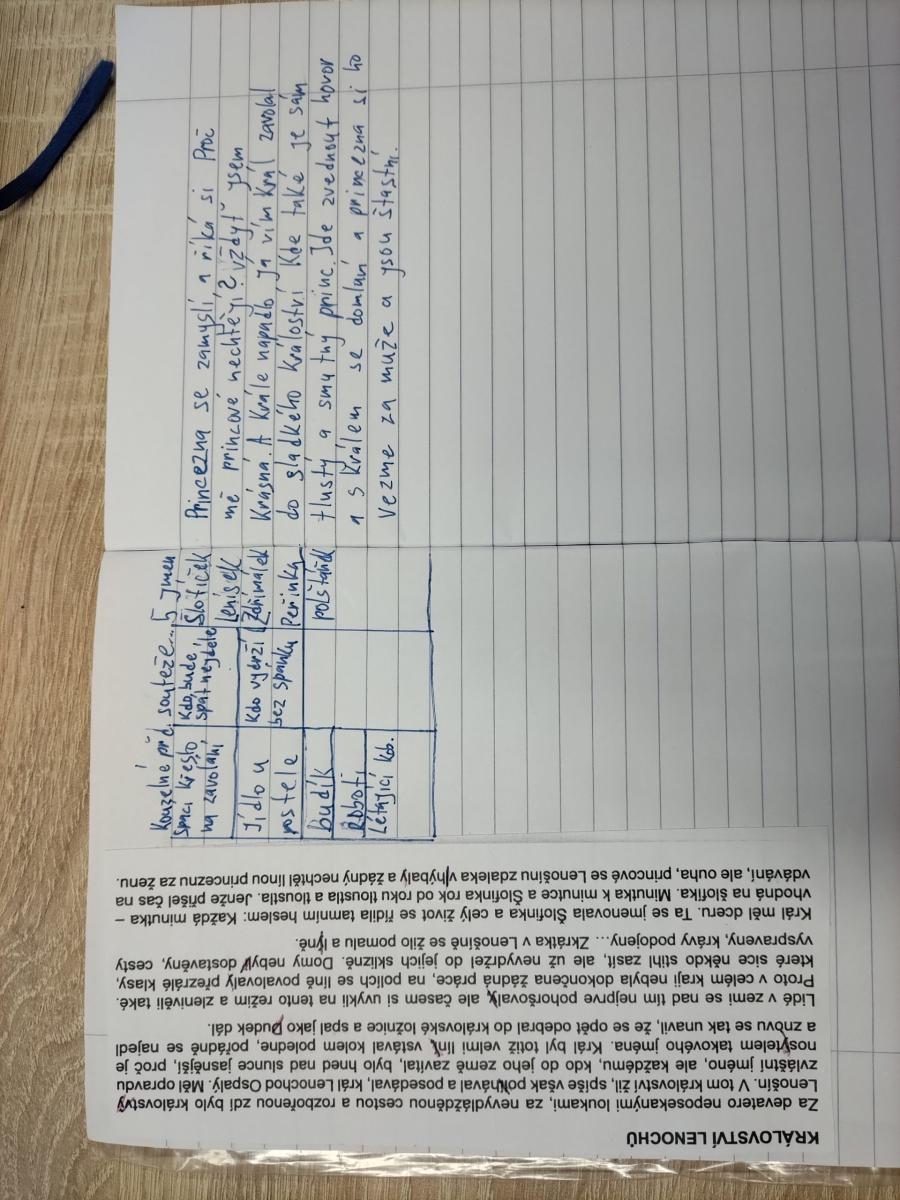 KRÁLOVSTVÍ LENOCHŮ
Za devatero neposekanými loukami, za nevydlážděnou cestou a rozbořenou zdí bylo království
Lenošín. V tom království žil, spíše však polihával a posedával, král Lenochod Ospalý. Měl opravdu
zvláštní jméno, ale každému, kdo do jeho země zavítal, bylo hned nad slunce jasnější, proč je
nositelem takového jména. Král byl totiž velmi líný, vstával kolem poledne, pořádně se najedl
a znovu se tak unavil, že se opět odebral do královské ložnice a spal jako Dudek dál.
Lidé v zemi se nad tím nejprve pohoršovaly, ale časem si uvykli na tento režim a zlenivěli také.
Proto v celém kraji nebyla dokončena žádná práce, na polích se líně povalovaly přezrálé klasy,
které sice někdo stihl zasít, ale už nevydržel do jejich sklizně. Domy nebyly dostavěny, cesty
vyspraveny, krávy podojeny... Zkrátka v Lenošíně se žilo pomalu a lýně.
Král měl dceru. Ta se jmenovala Šlofinka a celý život se řídila tamním heslem: Každá minutka –
vhodná na šlofíka. Minutka k minutce a Šlofinka rok od roku tloustla a tloustla. Jenže přišel čas na
vdávání, ale ouha, princové se Lenošínu zdaleka vyhýbaly a žádný nechtěl línou princeznu za ženu.
Kouzelné př d. soutěže... 5 jmen
Spací křeslo na zavolání
Kdo bude spát nejdéle
Šlofíček
Lenísek
Jídlo u postele
Kdo vydrží bez spánku
Zdřímálek
Peřinka
budík
polštářek
Roboti
Létající kb.
Princezna se zamyslí a říká si Proč
mě princové nechtějí? vždyť jsem
Krásná. A Krále napadlo já vím král zavolal
do sladkého Králoství Kde také je sám
tlustý a smutný princ. Jde zvednout hovor
a s králem se domluví a princezna si ho
Vezme za muže a jsou šťastní.